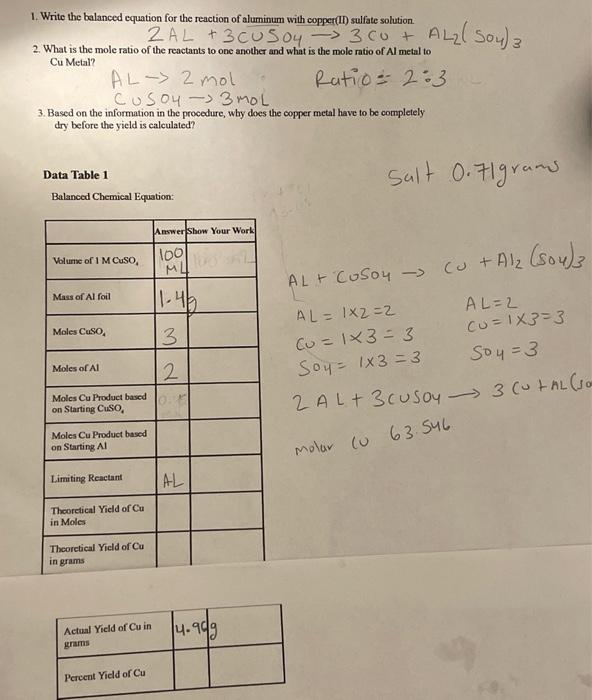 1. Write the balanced equation for the reaction of aluminum with copper(II) sulfate solution.
2AL + 3CUSO4 → 3CU + AL2(SO4)3
2. What is the mole ratio of the reactants to one another and what is the mole ratio of Al metal to
Cu Metal?
AL → 2 mol
Ratio = 2:3
CUSO4 → 3mol
3. Based on the information in the procedure, why does the copper metal have to be completely
dry before the yield is calculated?
Salt 0.71grams
Data Table 1
Balanced Chemical Equation:
Answer Show Your Work
Volume of 1 M CuSO4
100
ML
Mass of Al foil
1.4g
Moles CuSO4
3
Moles of Al
2
Moles Cu Product based
on Starting CuSO4
Moles Cu Product based
on Starting Al
Limiting Reactant
AL
Theoretical Yield of Cu
in Moles
Theoretical Yield of Cu
in grams
AL + CUSO4 → CU + Al2(SO4)3
AL = 1x2=2
AL=2
CU = 1x3 = 3
CU=1x3=3
SO4 = 1x3 = 3
SO4 = 3
2AL + 3CUSO4 → 3CU + AL(SO
molar CU 63.546
Actual Yield of Cu in
grams
Percent Yield of Cu